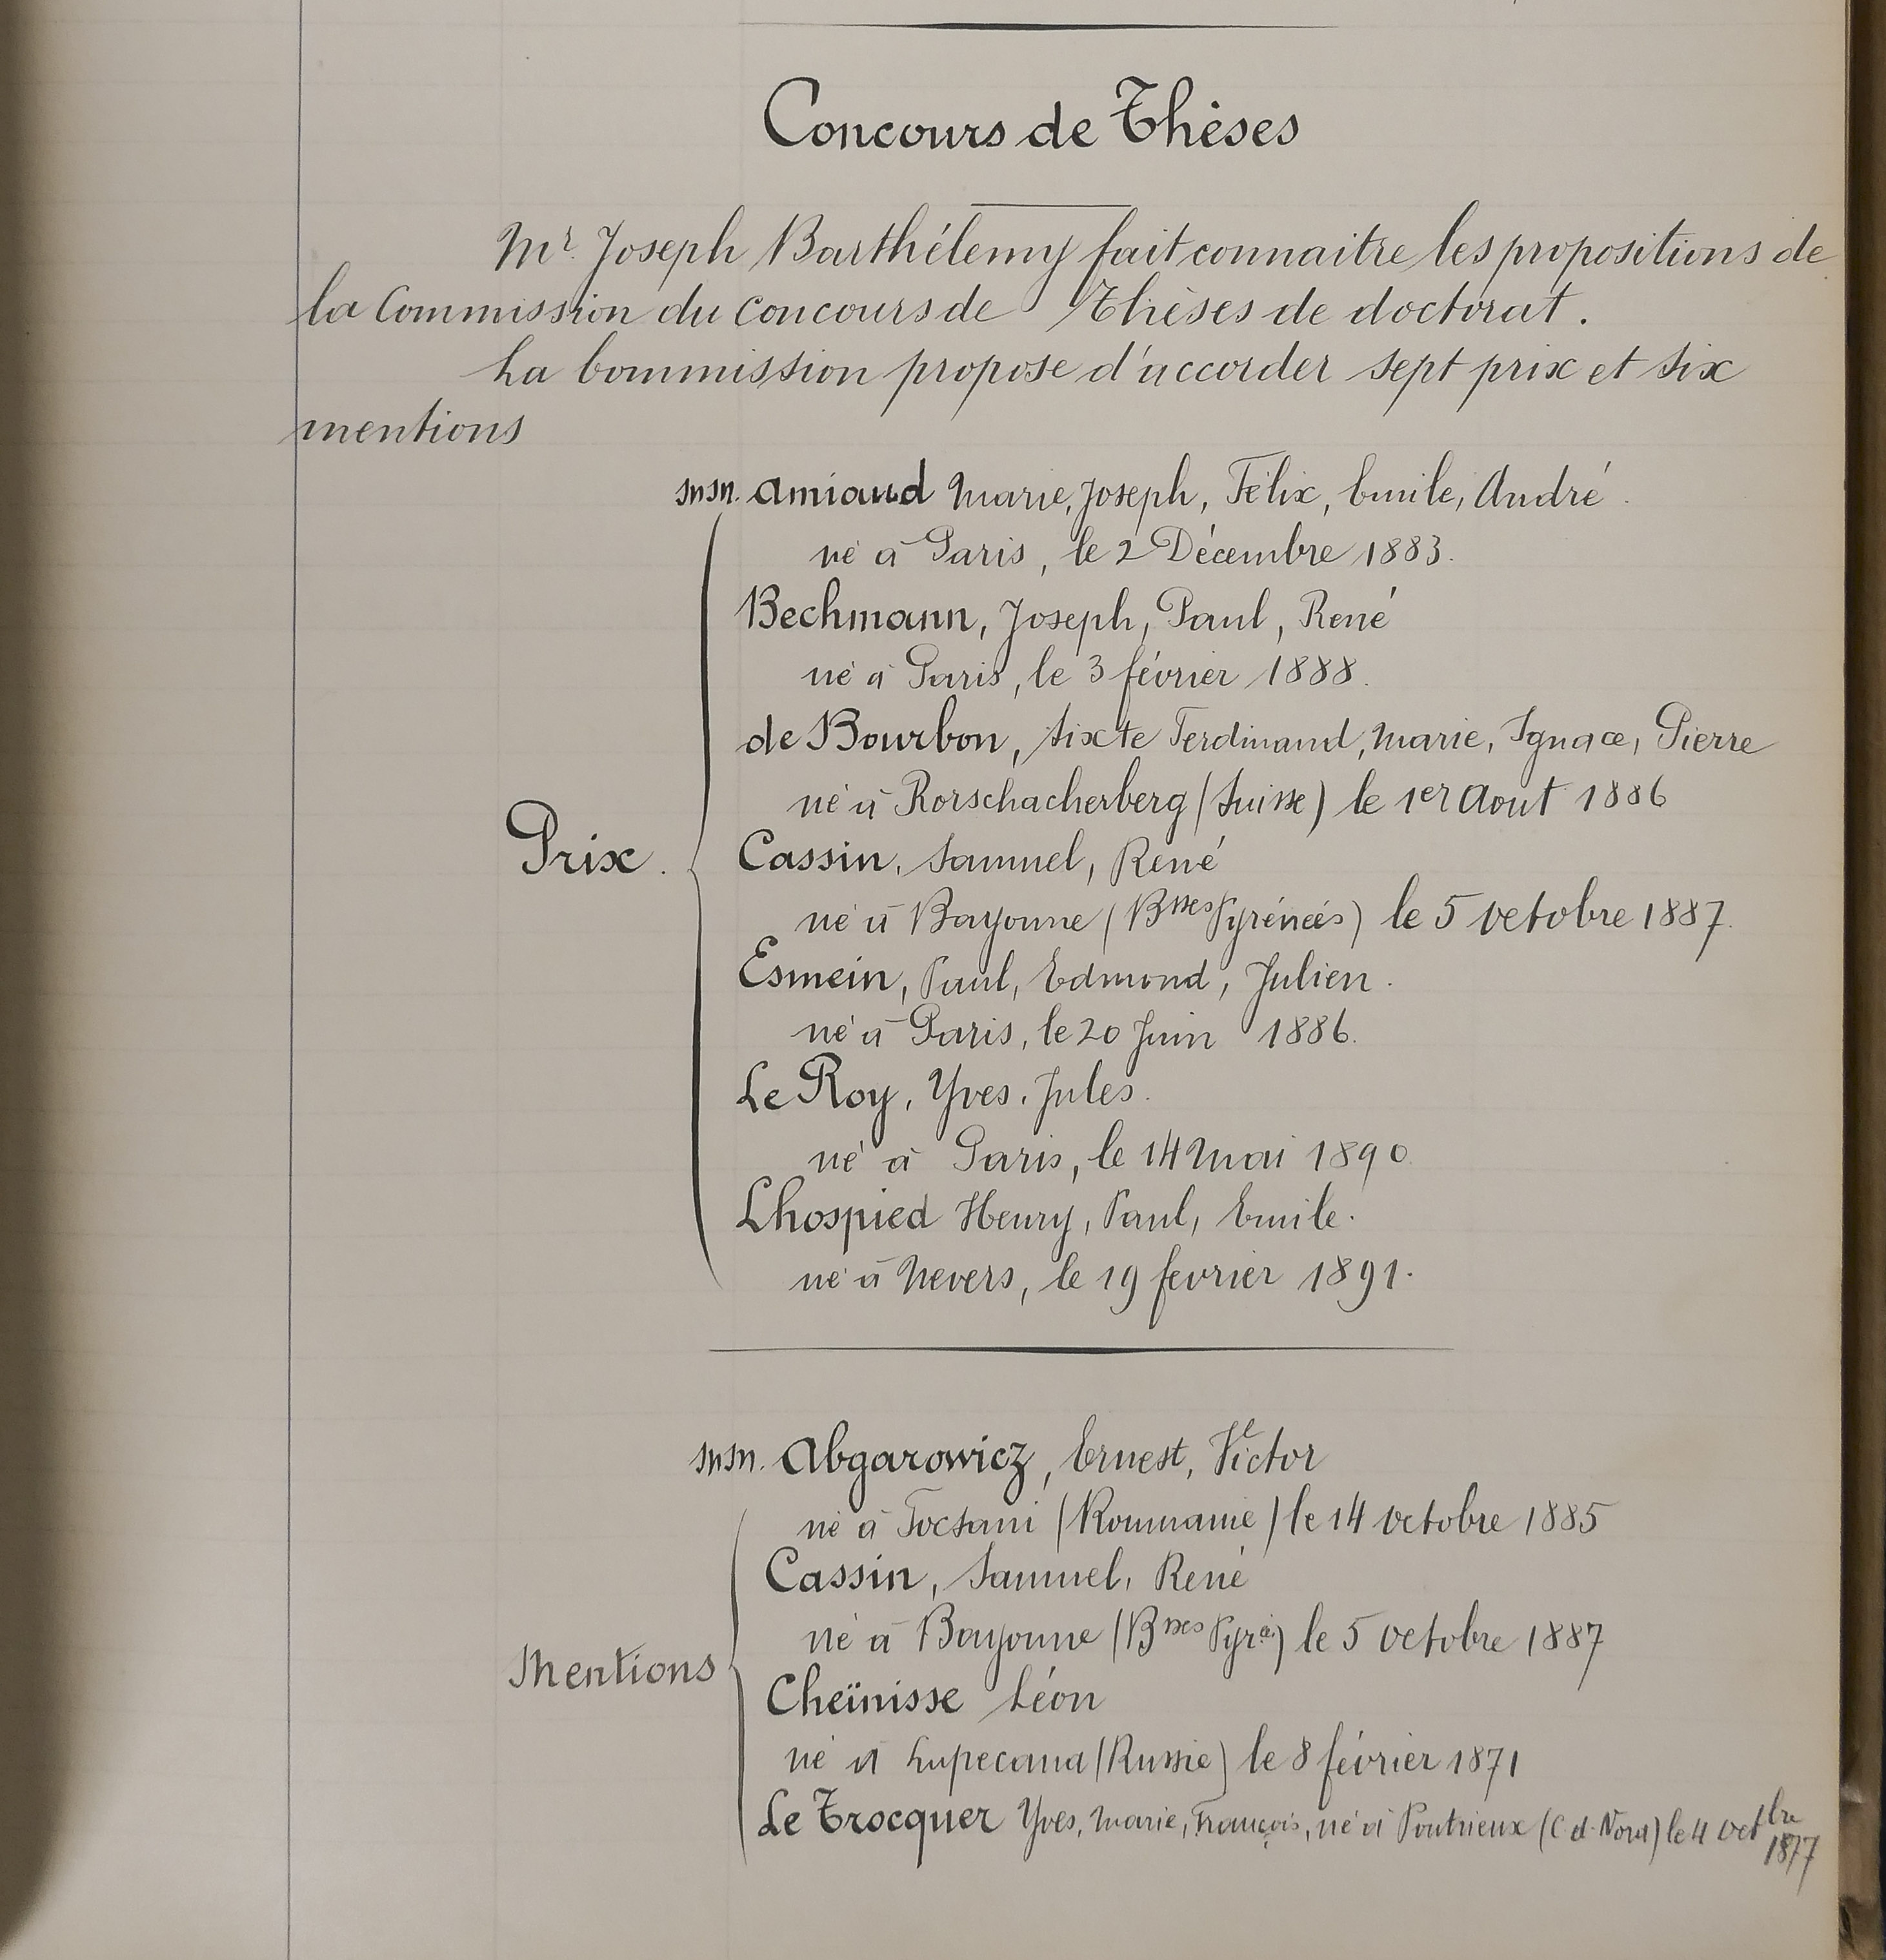 Concours de Thèses
Mr. Joseph Barthélemy fait connaitre les propositions de
la Commission du concours de Thèses de doctorat.
La Commission propose d'accorder sept prix et six
mentions
MM. Amiaud Marie, Joseph, Félix, Emile, André.
né à Paris, le 2 Décembre 1883.
Bechmann, Joseph, Paul, René
né à Paris, le 3 février 1888.
de Bourbon, Sixte Ferdinand, Marie, Ignace, Pierre
né à Rorschacherberg (Suisse) le 1er Aout 1886
Prix.
Cassin, Samuel, René
né à Bayonne (Bsses Pyrénées) le 5 Octobre 1887.
Esmein, Paul, Edmond, Julien.
né à Paris, le 20 Juin 1886.
Le Roy, Yves, Jules.
né à Paris, le 14 Mai 1890.
Lhospied Henry, Paul, Emile.
né à Nevers, le 19 fevrier 1891.
MM. Abgarowicz, Ernest, Victor
né à Focsani (Roumanie) le 14 Octobre 1885
Cassin, Samuel, René
né à Bayonne (Bsses Pyr.) le 5 Octobre 1887
Mentions
Cheïnisse Léon
né à (Russie) le 8 février 1871
Le Trocquer Yves, Marie, François, né à Pontrieux (C. d. Nord) le 4 Octbre
1877